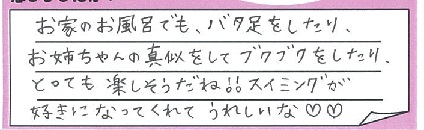 お家のお風呂でも、バタ足をしたり、
お姉ちゃんの真似をしてブクブクをしたり、
とっても楽しそうだね!!スイミングが
好きになってくれてうれしいな♡♡